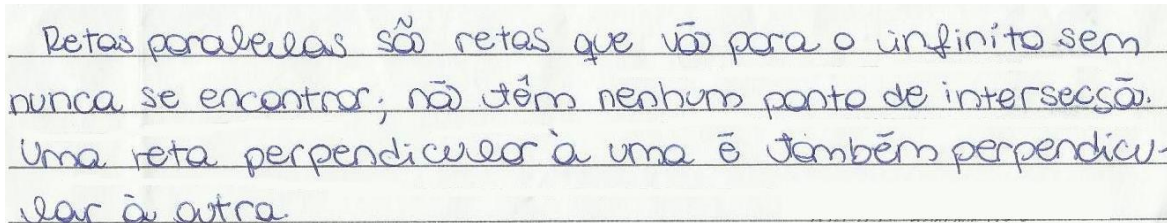 Retas paralelas são retas que vão para o infinito sem
nunca se encontrar; não têm nenhum ponto de intersecsão.
Uma reta perpendicular à uma é também perpendicu-
lar à outra.